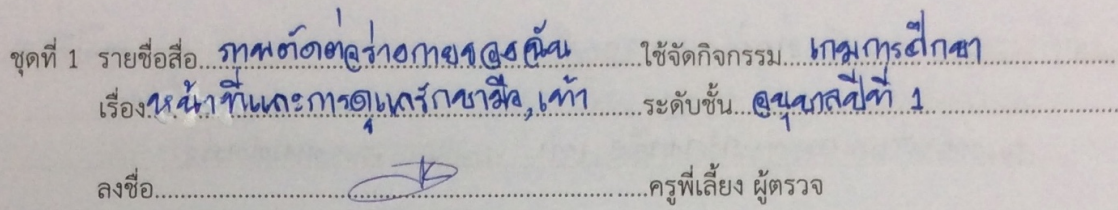 ชุดที่ 1 รายชื่อสื่อ ภาพตัดต่อร่างกายของฉัน ใช้จัดกิจกรรม เกมการศึกษา
เรื่อง หน้าที่และการดูแลรักษามือ, เท้า ระดับชั้น อนุบาลปีที่ 1
ลงชื่อ ครูพี่เลี้ยง ผู้ตรวจ